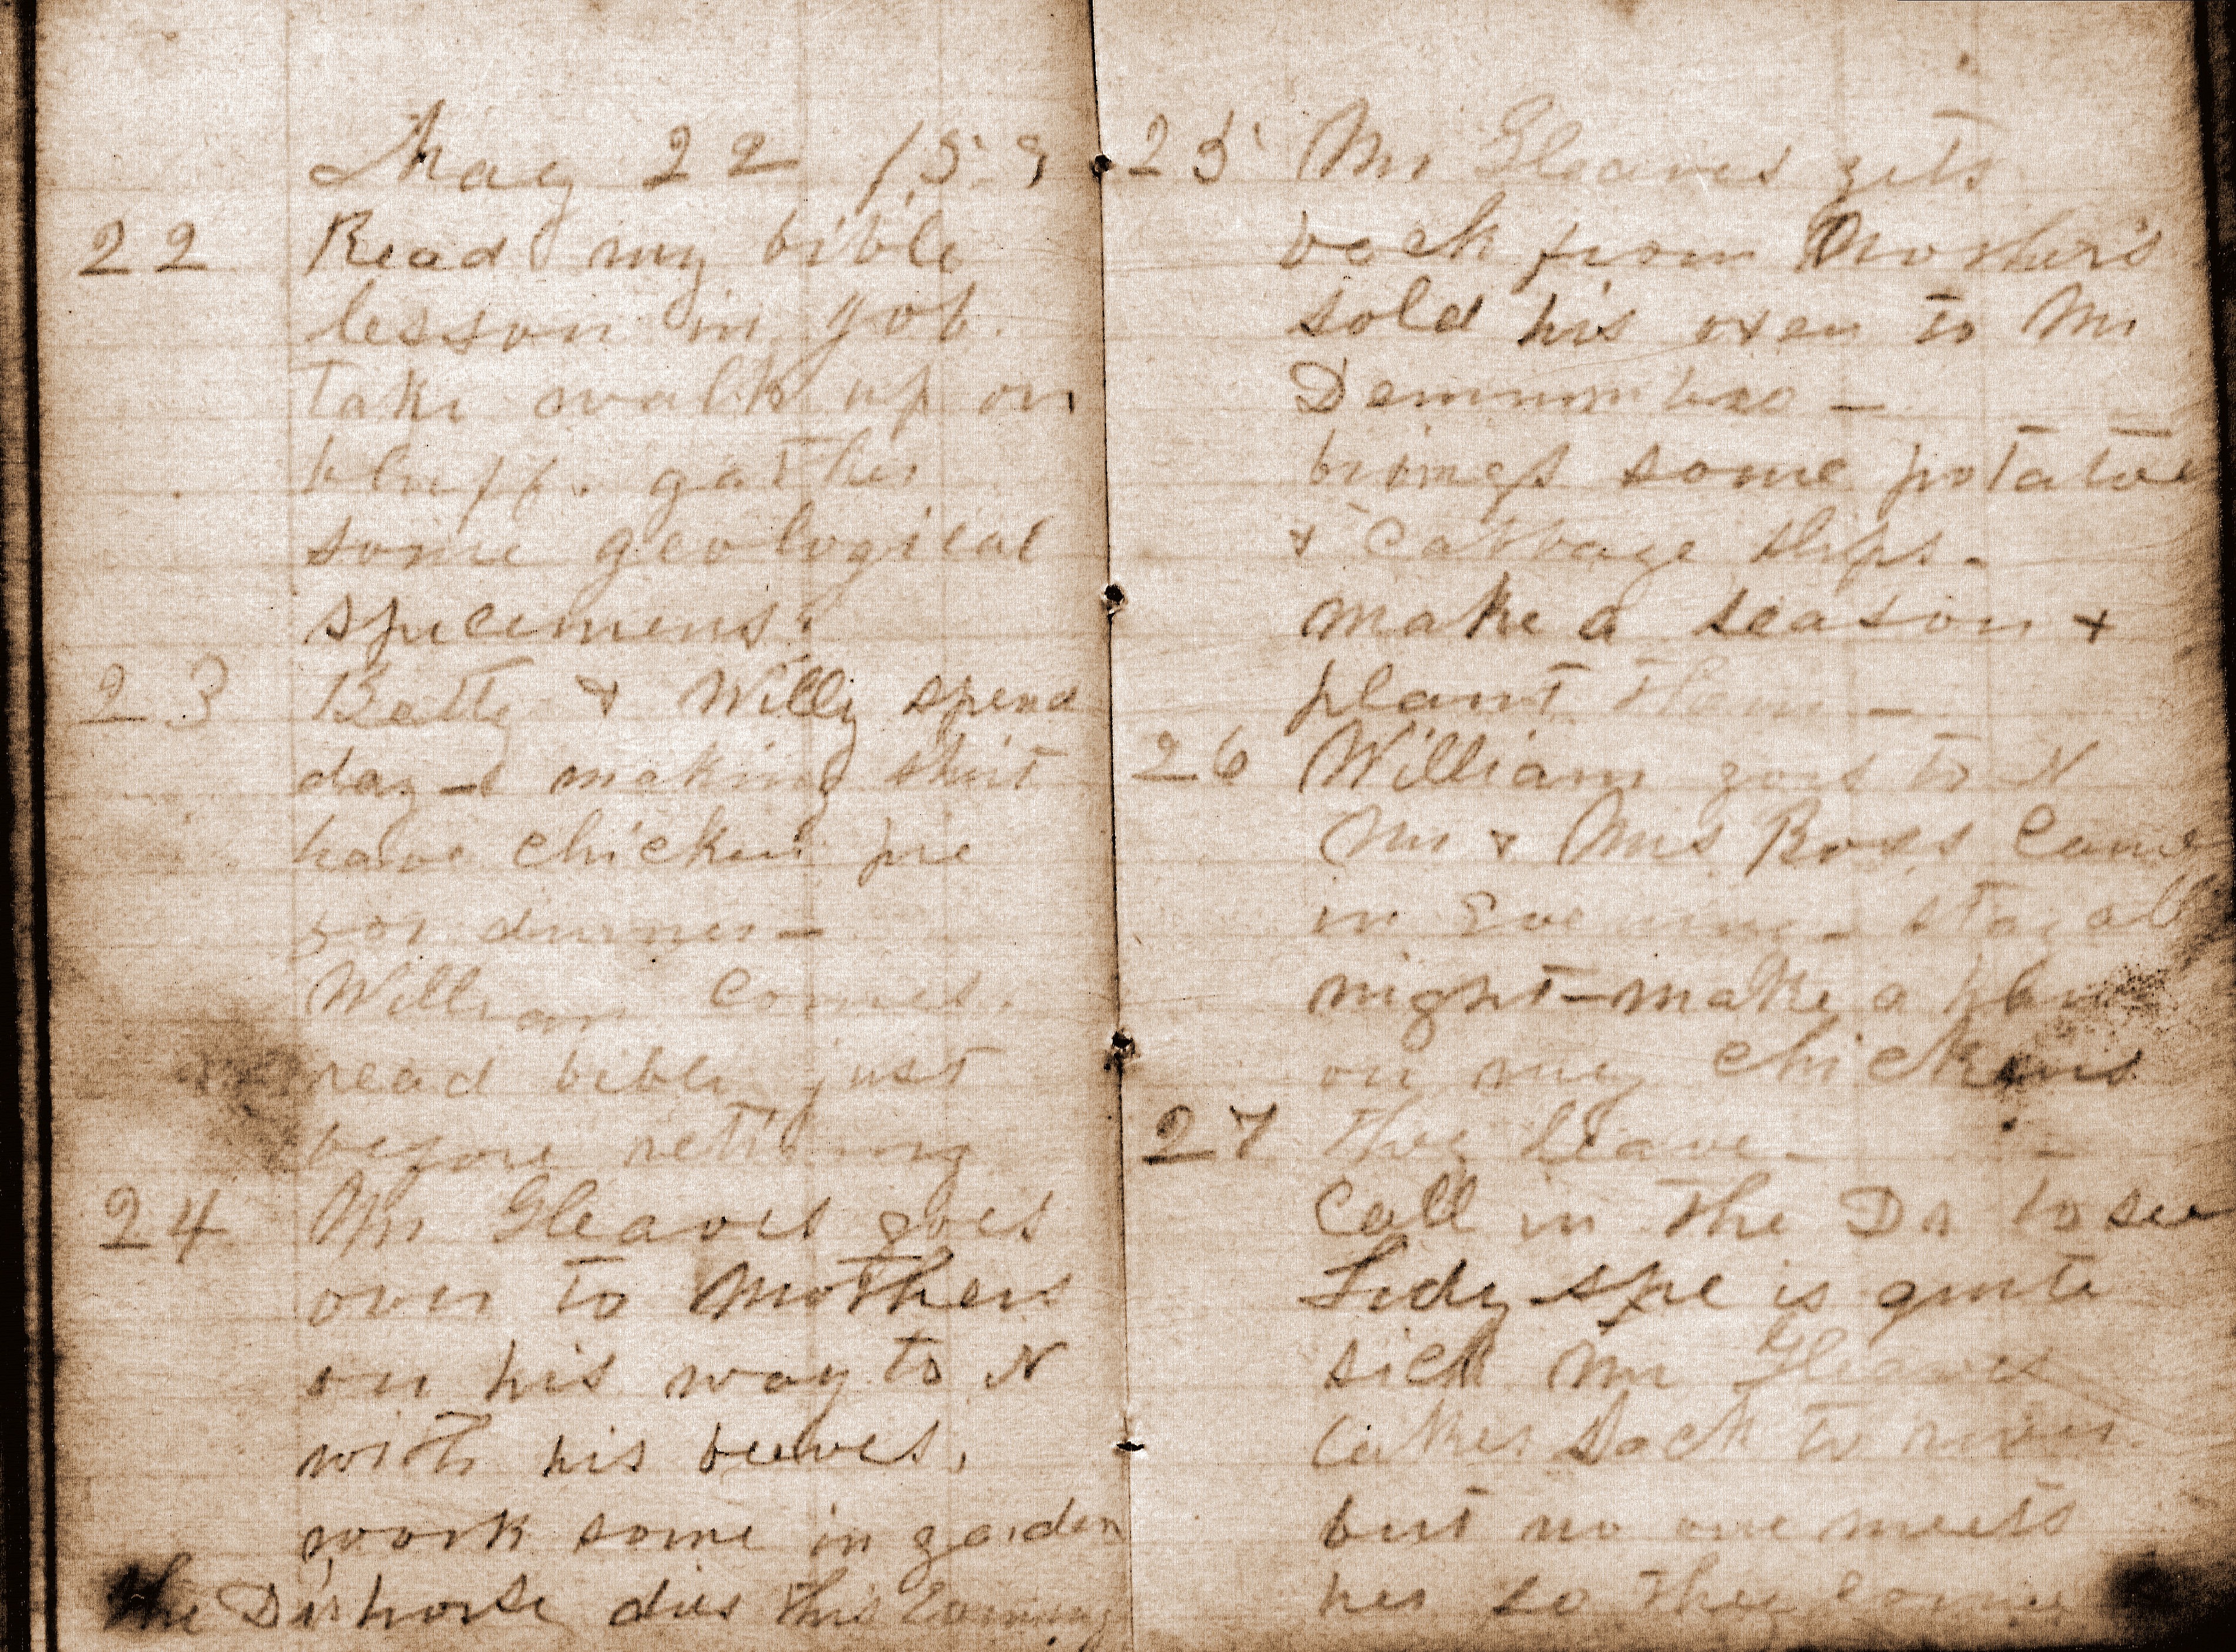 May 22 /59
22 Read my bible
lesson in Job.
take walk up on
bluff. gather
some geological
specimens.
23 Betty & Willy spend
day - making shirt
have chicken pie
for dinner -
William comes.
read bible just
before retiring
24 Mr Gleaves goes
over to Mothers
on his way to N
with his beeves.
work some in garden
the Drs horse dies this Evening
25 Mr Gleaves gets
back from Mothers
sold his oxen to Mr
Demumbro -
brings some potatoe
& Cabbage slips -
make a season &
plant them -
26 William goes to N
Mr & Mrs Ross Came
in Evening - stay all
night - make a
on my chickens
27 they leave -
Call in the Dr to see
she is quite
sick Mr Gleaves
takes back to river
but no one meets
her so they come